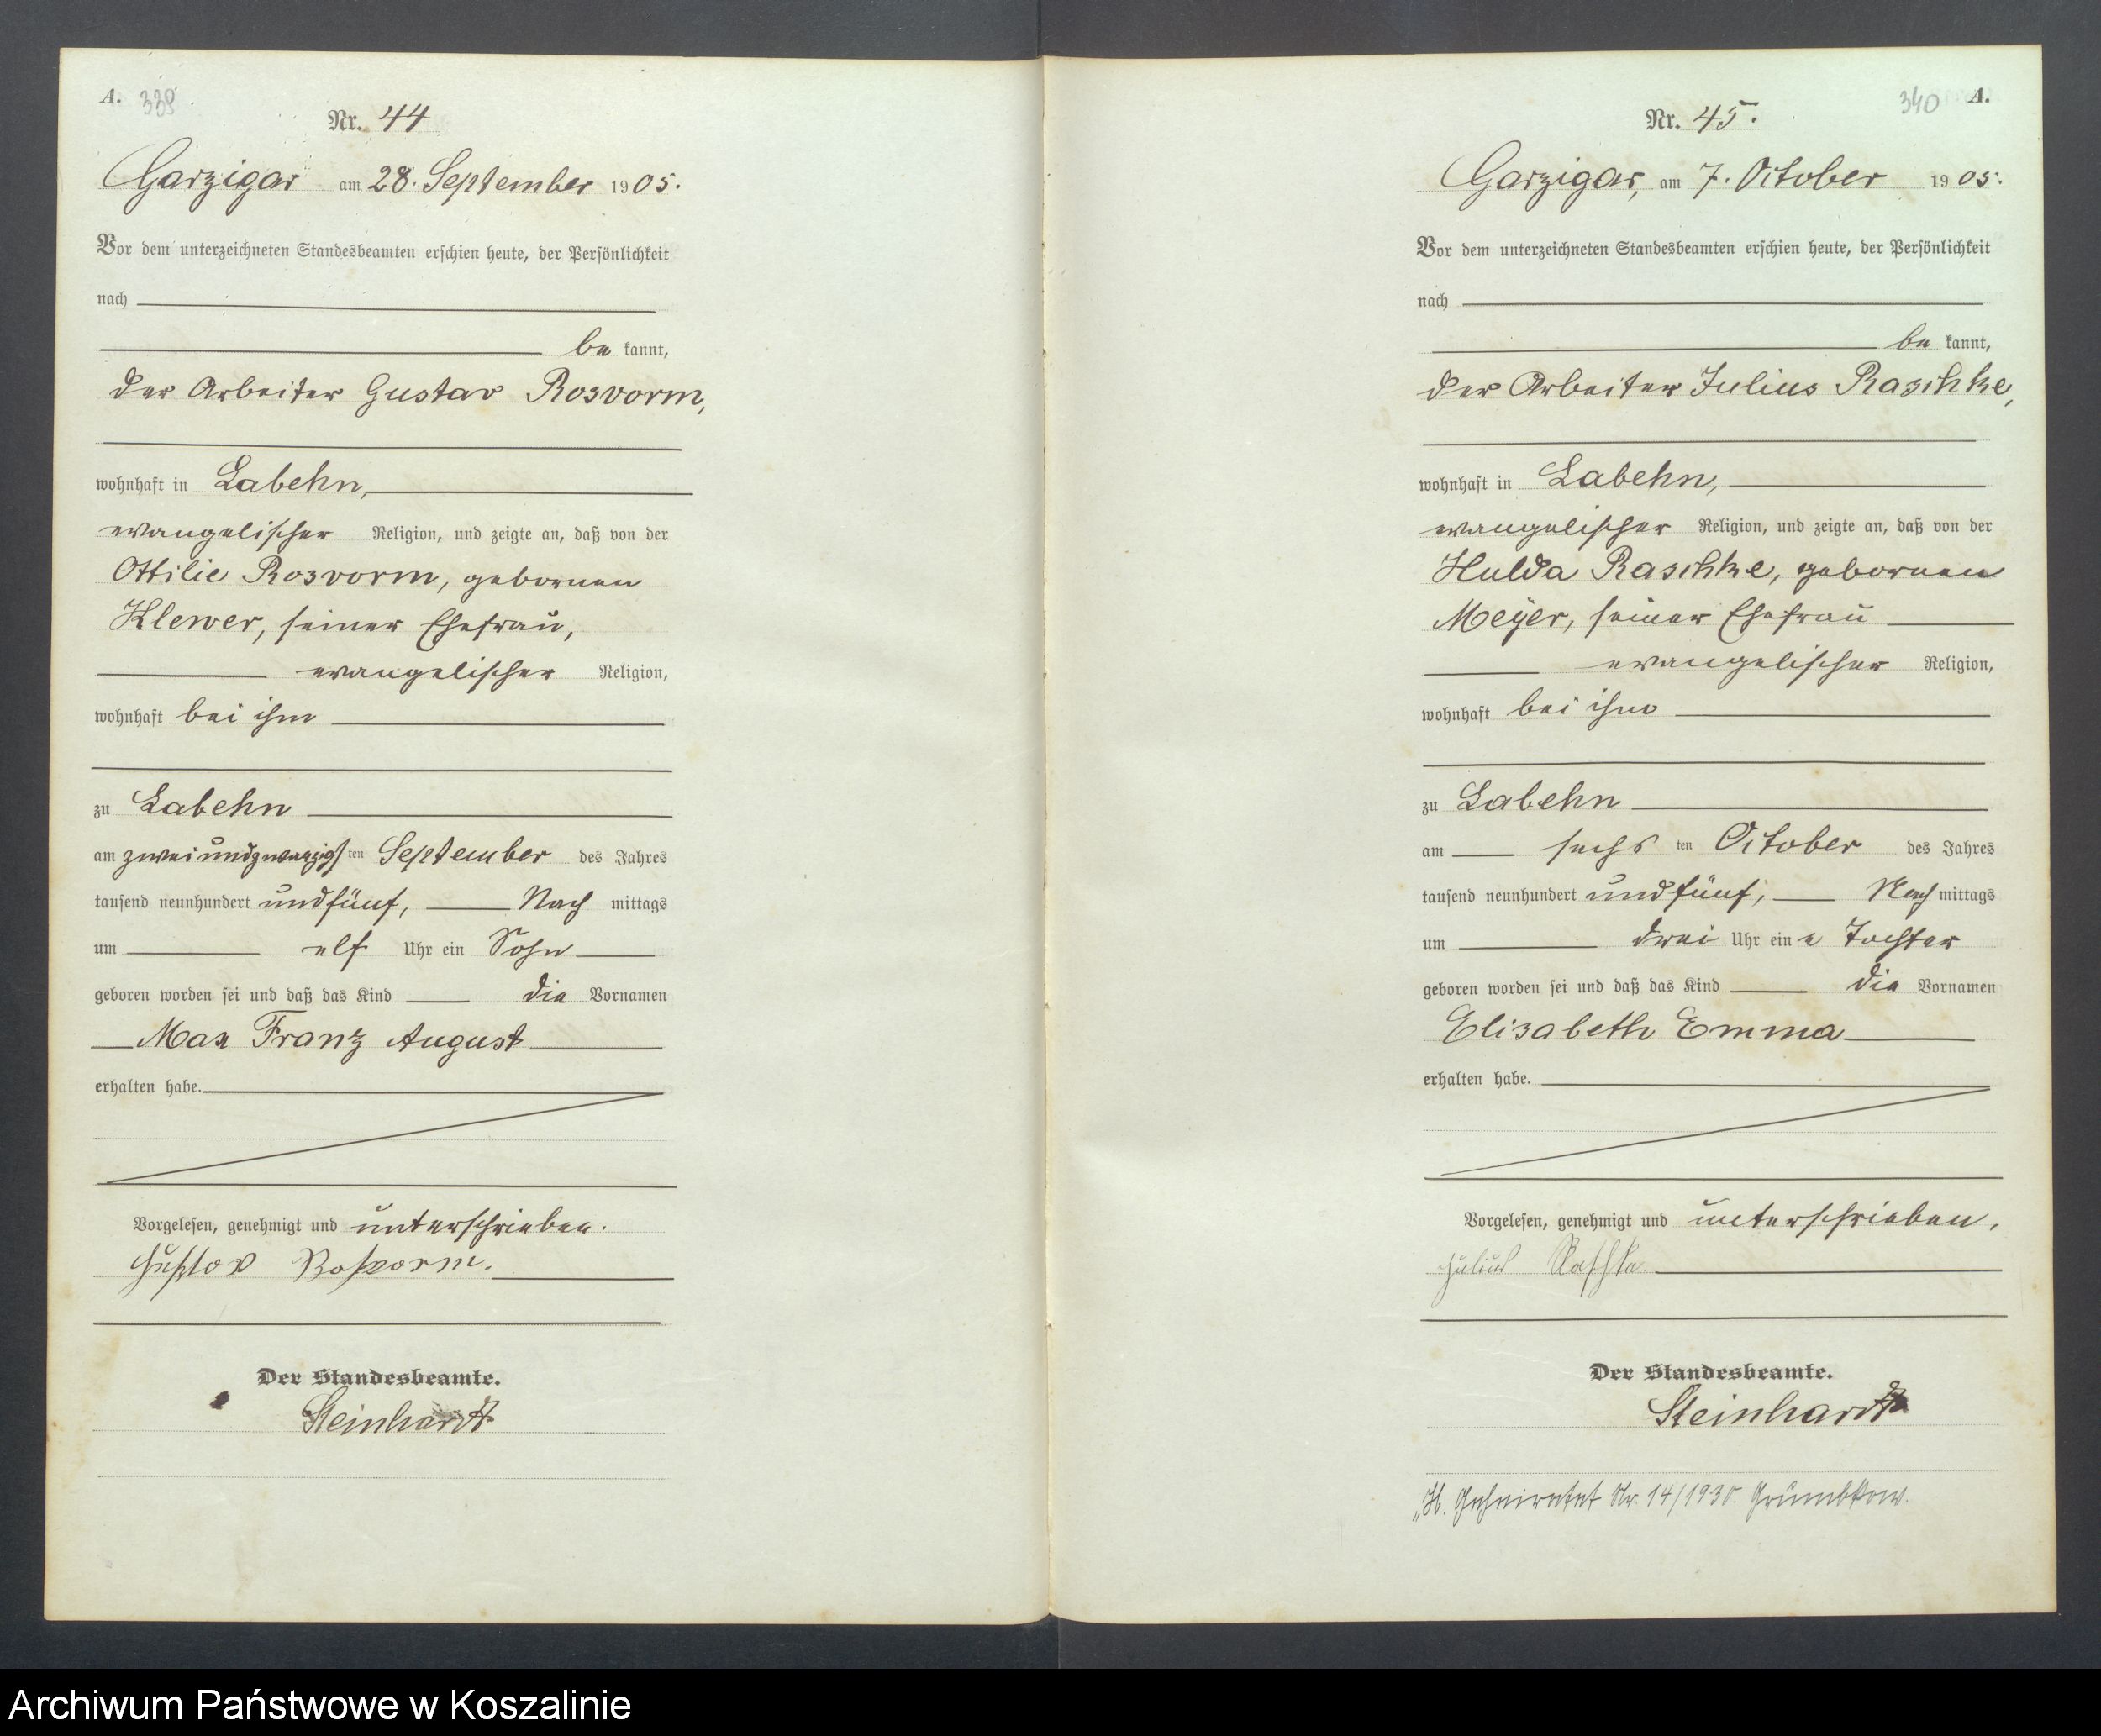 A. 339
Nr. 44
Garzigar am 28. September 1905.
Vor dem unterzeichneten Standesbeamten erschien heute, der Persönlichkeit
nach
be kannt,
der Arbeiter Gustav Rosvorm,
wohnhaft in Labehn,
evangelischer Religion, und zeigte an, daß von der
Ottilie Rosvorm, gebornen
Klewer, seiner Ehefrau,
evangelischer Religion,
wohnhaft bei ihm
zu Labehn
am zweiundzwanzigsten September des Jahres
tausend neunhundert undfünf, Nach mittags
um elf Uhr ein Sohn
geboren worden sei und daß das Kind die Vornamen
Max Franz August
erhalten habe.
Vorgelesen, genehmigt und unterschrieben.
Gustav Rosvorm.
Der Standesbeamte.
Steinhardt
340 A.
Nr. 45.
Garzigar, am 7. October 1905.
Vor dem unterzeichneten Standesbeamten erschien heute, der Persönlichkeit
nach
be kannt,
der Arbeiter Julius Raschke,
wohnhaft in Labehn,
evangelischer Religion, und zeigte an, daß von der
Hulda Raschke, gebornen
Meyer, seiner Ehefrau
evangelischer Religion,
wohnhaft bei ihm
zu Labehn
am sechs ten October des Jahres
tausend neunhundert undfünf, Nach mittags
um drei Uhr ein e Tochter
geboren worden sei und daß das Kind die Vornamen
Elisabeth Emma
erhalten habe.
Vorgelesen, genehmigt und unterschrieben.
Julius Raschke
Der Standesbeamte.
Steinhardt
Geheiratet Nr. 14/1930. Grumbkow.
Archiwum Państwowe w Koszalinie